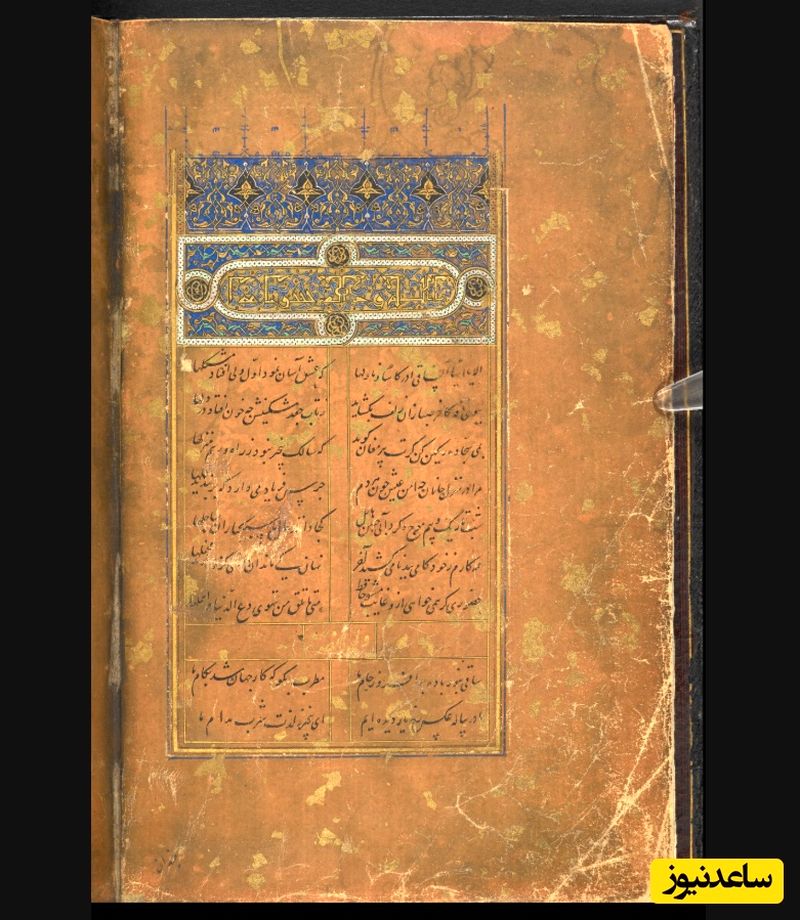 الا یا ایها الساقی ادر کاسا و ناولها که عشق آسان نمود اول ولی افتاد مشکلها
ببوی نافه کاخر صبا زان طره بگشاید ز تاب جعد مشکینش چه خون افتاد در دلها
بمی سجاده رنگین کن گرت پیر مغان گوید که سالک بیخبر نبود ز راه و رسم منزلها
مرا در منزل جانان چه امن عیش چون هر دم جرس فریاد می دارد که بربندید محملها
شب تاریک و بیم موج و گردابی چنین هایل کجا دانند حال ما سبکباران ساحلها
همه کارم ز خود کامی ببدنامی کشید آخر نهان کی ماند آن رازی کزو سازند محفلها
حضوری گر همی خواهی ازو غایب مشو حافظ متی ما تلق من تهوی دع الدنیا و اهملها
ساقی بنور باده برافروز جام ما مطرب بگو که کار جهان شد بکام ما
ما در پیاله عکس رخ یار دیده ایم ای بیخبر ز لذت شرب مدام ما
ساعدنیوز